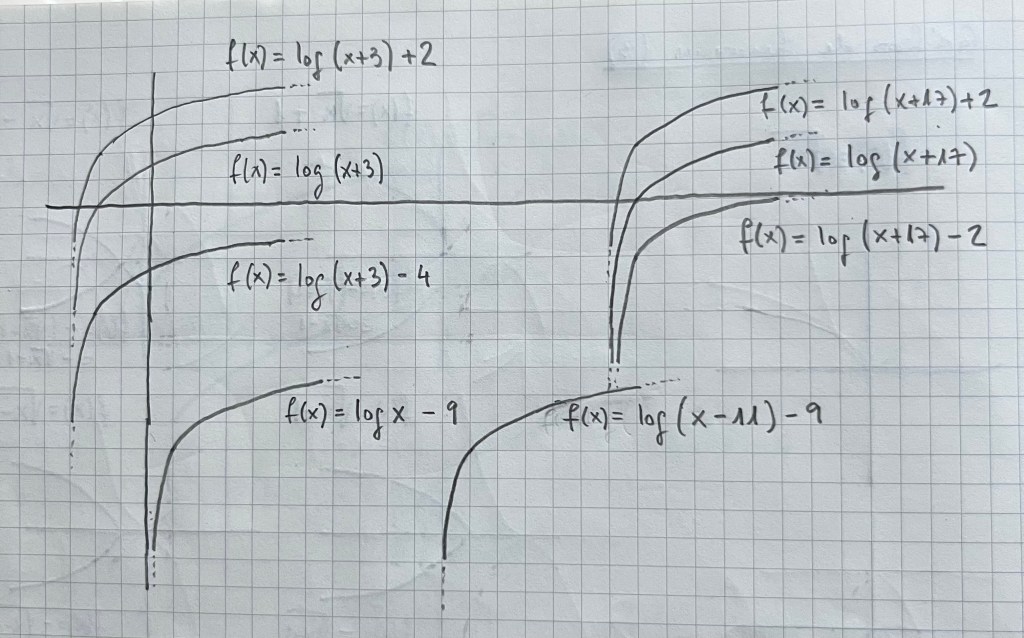 f(x) = log (x+3) + 2
f(x) = log (x+17) + 2
f(x) = log (x+3)
f(x) = log (x+17)
f(x) = log (x+17) - 2
f(x) = log (x+3) - 4
f(x) = log x - 9
f(x) = log (x - 11) - 9